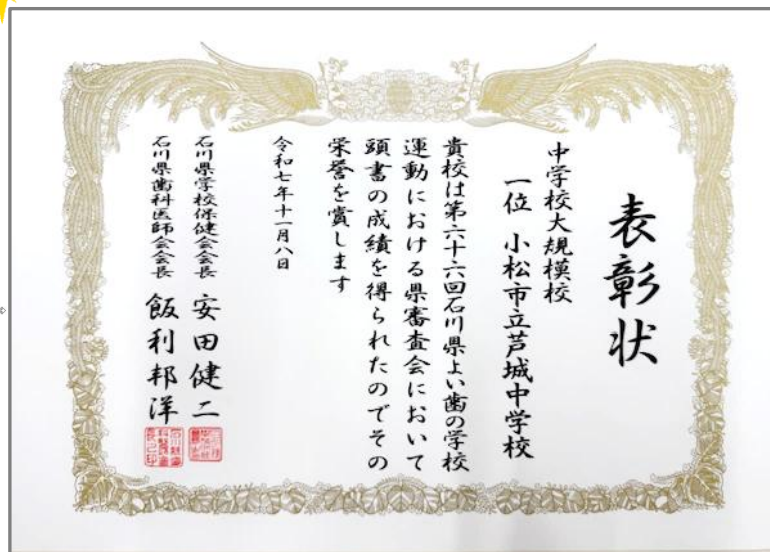 表彰状
中学校大規模校
一位 小松市立芦城中学校
貴校は第六十六回石川県よい歯の学校
運動における県審査会において
頭書の成績を得られたのでその
栄誉を賞します
令和七年十一月八日
石川県学校保健会会長 安田健二
石川県歯科医師会会長 飯利邦洋